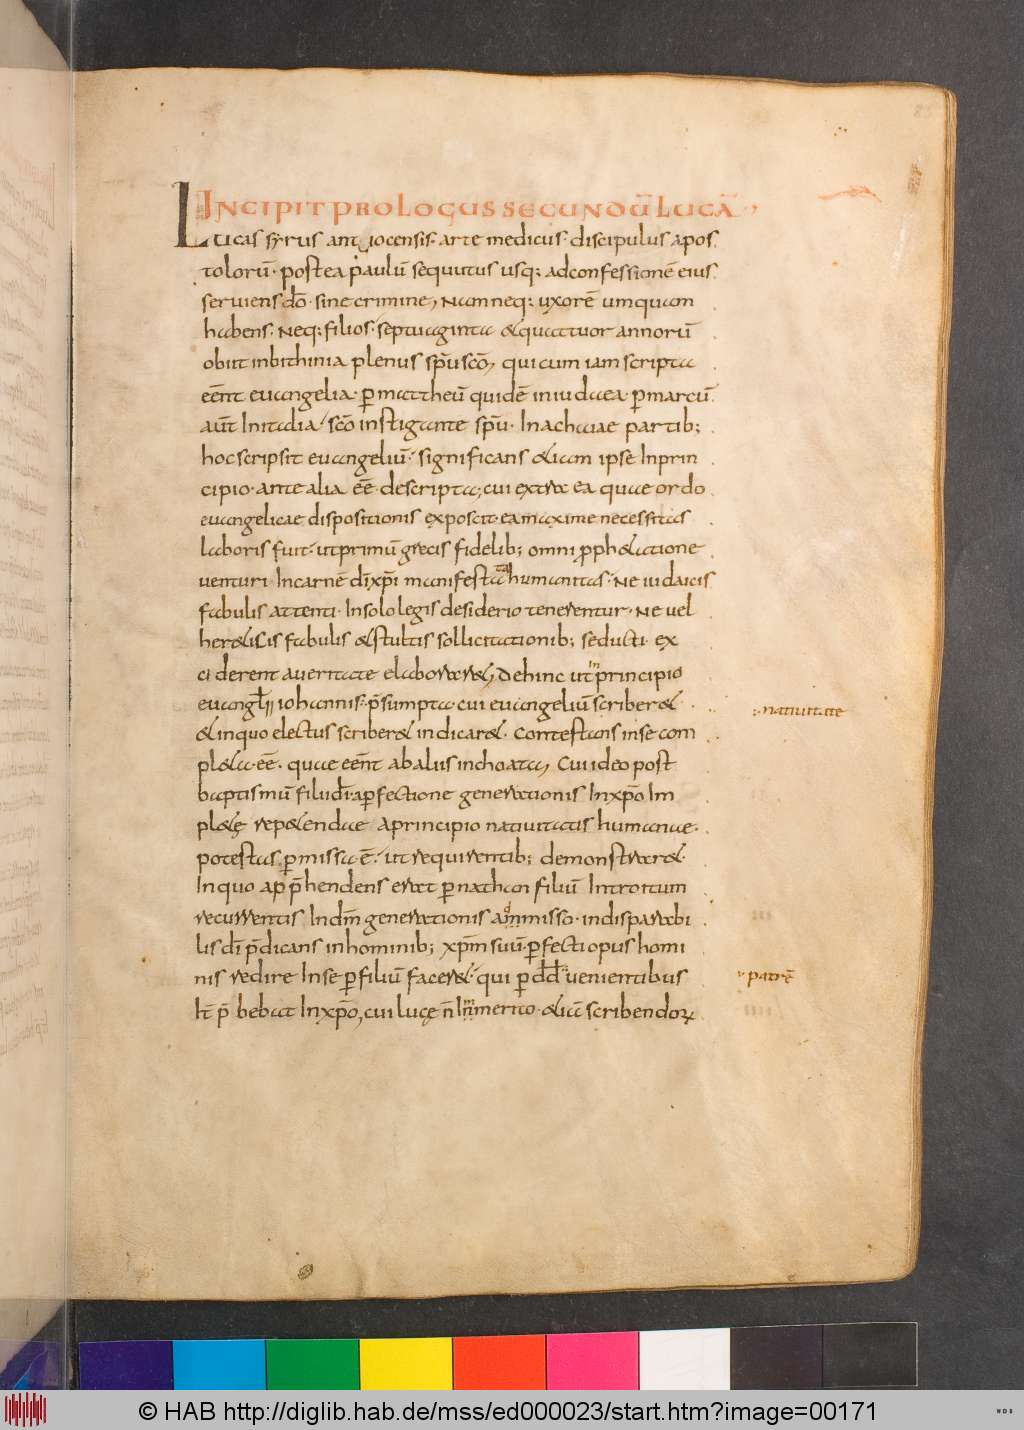 INCIPIT PROLOGUS SECUNDŪ LUCĀ
Lucas syrus antiocensis. arte medicus. discipulus apos
tolorū. postea paulū sequutus usq; ad confessionē eius
serviens dō. sine crimine, Nam neq; uxorē umquam
habens. Neq; filios. septuaginta & quattuor annorū
obiit in bithinia plenus spū scō, qui cum iam scripta
eēnt euangelia. p mattheū quidē in iudaea. p marcū
aūt In italia. scō instigante spū. In achaiae partib;
hoc scripsit euangeliū. significans &iam ipse In prin
cipio. ante alia eē descripta, cui extra ea quae ordo
euangelicae dispositionis exposcit. ea maxime necessitas
laboris fuit. ut primū grecis fidelib; omni pph&atione
venturi In carnē dī xpī manifesta humanitas. Ne iudaicis
fabulis attenti. In solo legis desiderio tenerentur. Ne vel
her&icis fabulis & stultis sollicitationib; seducti. ex
ciderent a veritate elaborar&, Dehinc ut In principio
euangłii iohannis. p̄sumpta. cui euangeliū scriber&
& in quo electus scriber& indicar&. Contestans in se com
pl&a eē. quae eēnt ab aliis inchoata, Cui ideo post
baptismū filii dī. a pfectione generationis In xpō Im
pl&ę rep&endae a principio nativitatis humanae.
potestas pmissa ē. ut requirentib; demonstrar&.
In quo app̄hendens erat p nathan filiū Introitum
recurrentis In dm̄ generationis ammisso. indisparabi
lis dī p̄dicans in hominib; xpm̄ suū. pfecti opus homi
nis redire In se p filiū facer&. qui p dd̄ venientibus
It p̄bebat In xpō, cui lucę n̄ Immerito. &iā scribendorꝝ
nativitate
patrē
© HAB http://diglib.hab.de/mss/ed000023/start.htm?image=00171